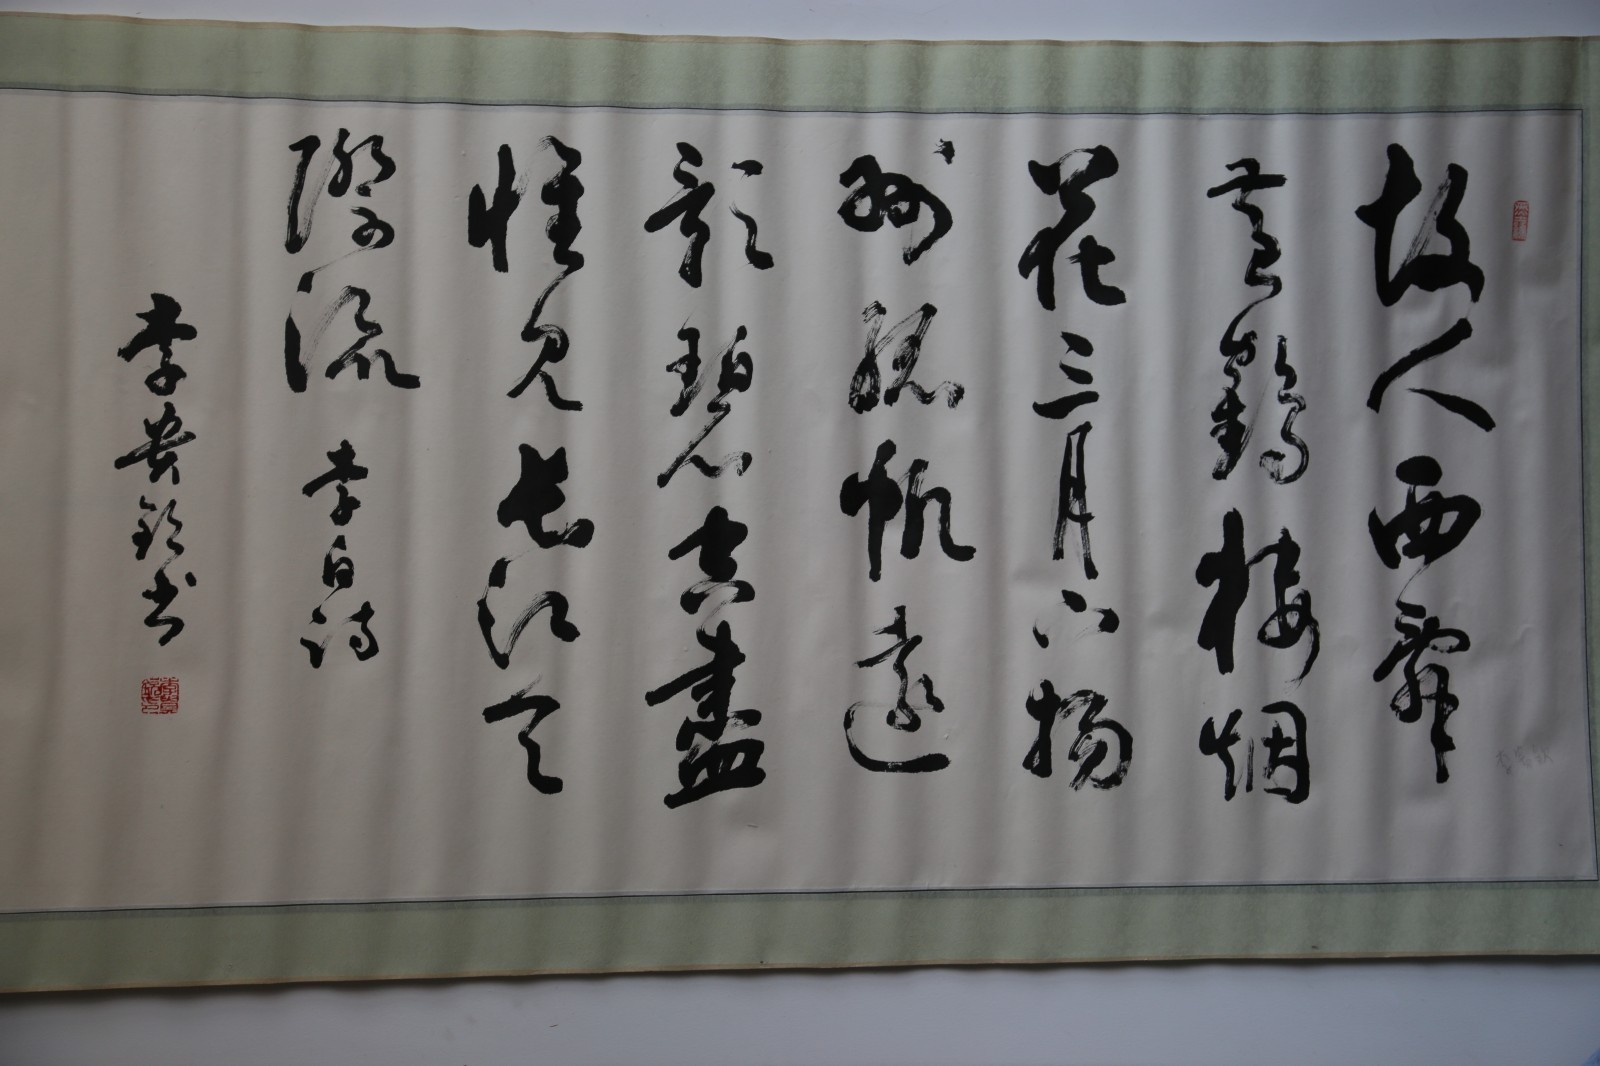 故人西辞
黄鹤楼烟
花三月下扬
州孤帆远
影碧空尽
惟见长江天
际流 李白诗
李贵钦书